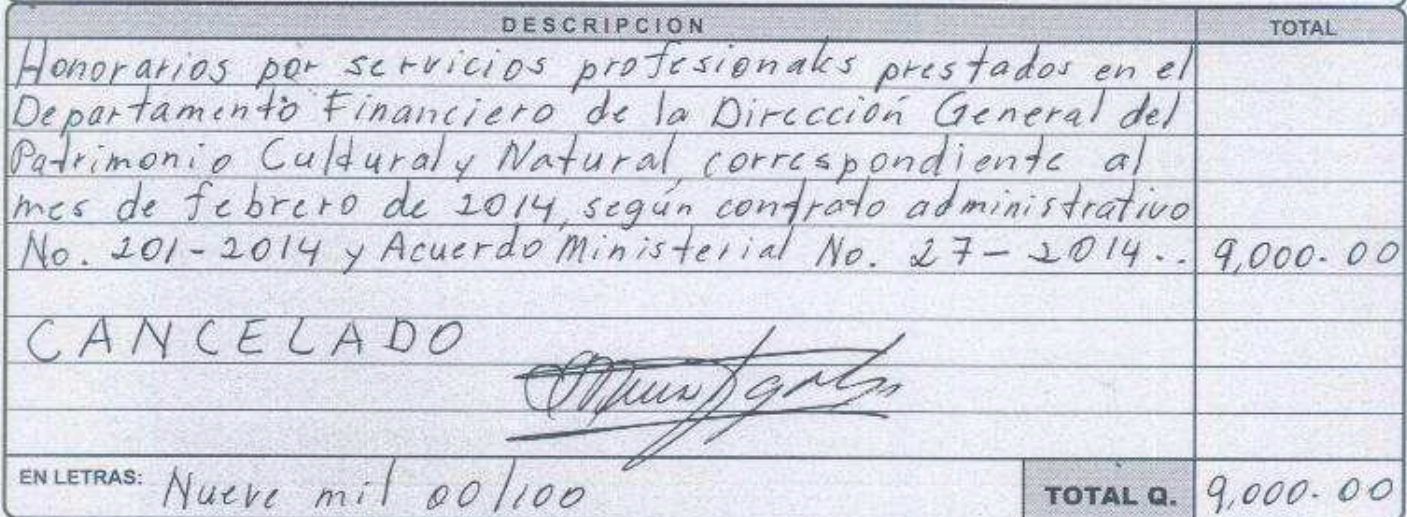 DESCRIPCION TOTAL
Honorarios por servicios profesionales prestados en el
Departamento Financiero de la Dirección General del
Patrimonio Cultural y Natural, correspondiente al
mes de febrero de 2014, según contrato administrativo
No. 201-2014 y Acuerdo Ministerial No. 27-2014.. 9,000.00
CANCELADO
EN LETRAS: Nueve mil 00/100 TOTAL Q. 9,000.00